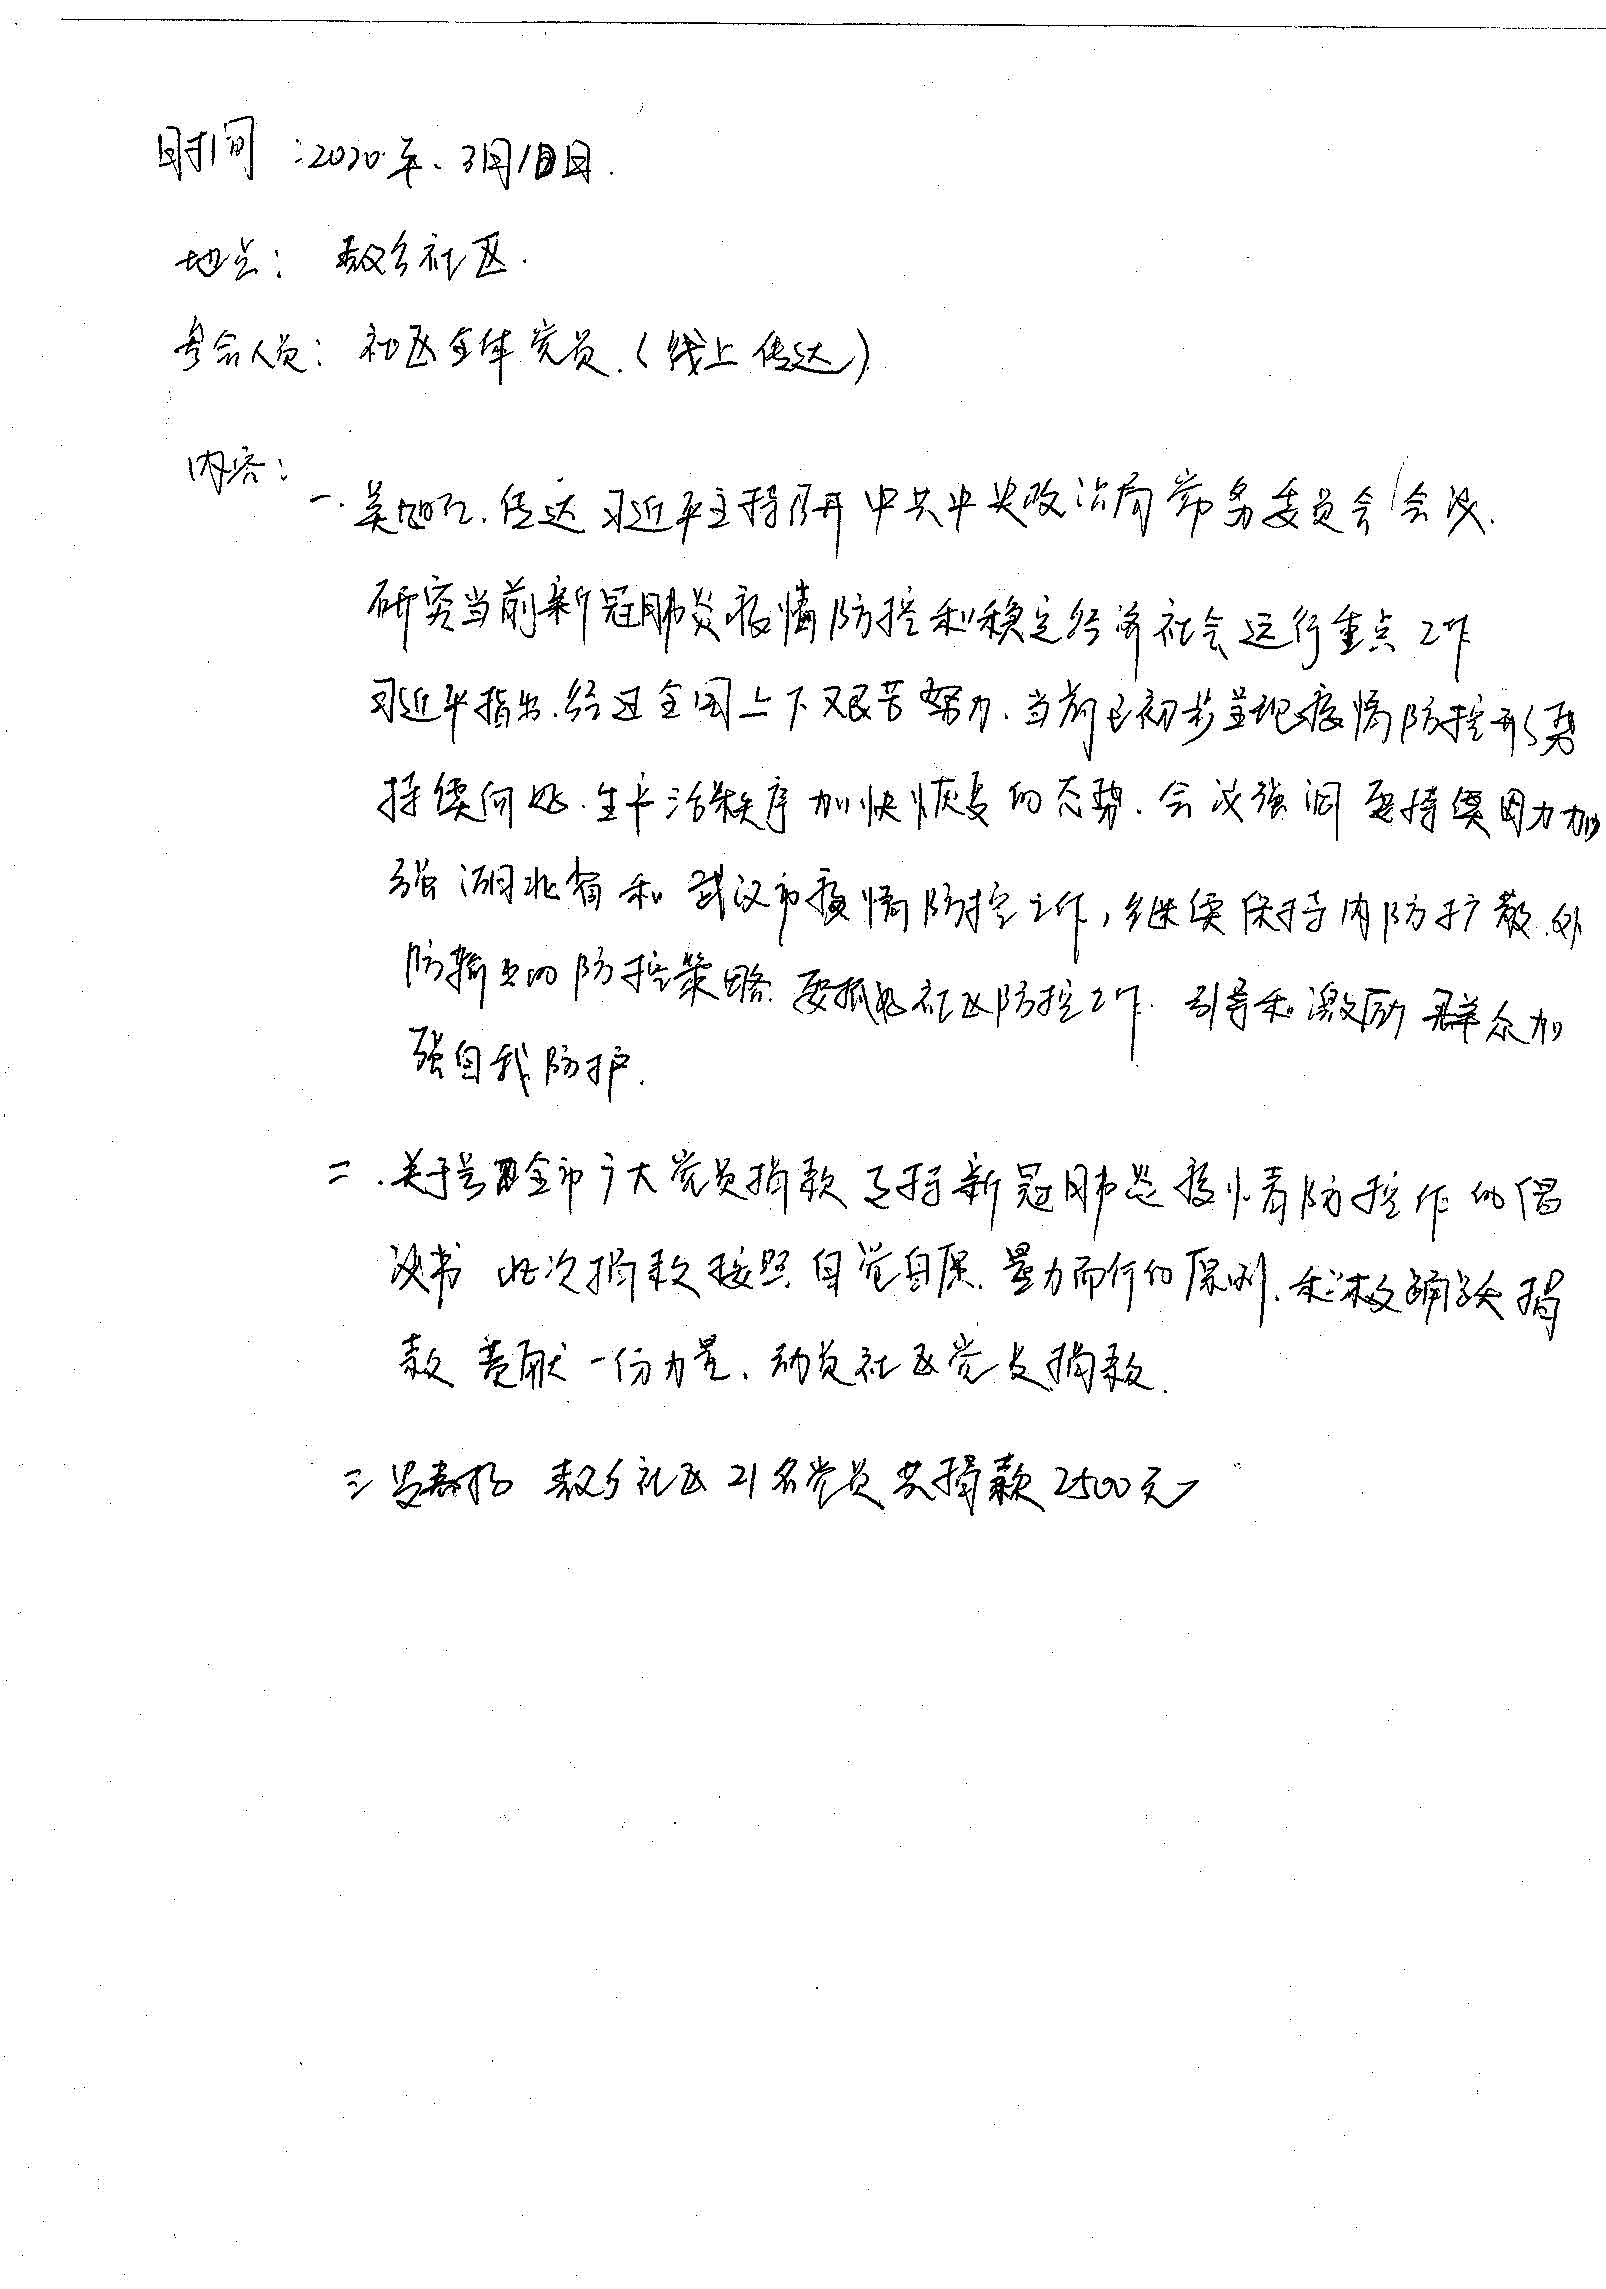 时间:2020年、3月10日.
地点: 敖乡社区.
参会人员: 社区全体党员.(线上传达)
内容:
一.吴旭红.传达 习近平主持召开 中共中央政治局常务委员会会议.
研究当前新冠肺炎疫情防控和稳定经济社会运行重点工作
习近平指出.经过全国上下艰苦努力.当前已初步呈现疫情防控形势
持续向好.生产活秩序加快恢复的态势.会议强调要持续用力加
强湖北省和武汉市疫情防控工作,继续保持内防扩散.外
防输出的防控策略.要抓好社区防控工作.引导和激励群众加
强自我防护.
二.关于号召全市广大党员捐款支持新冠肺炎疫情防控工作的倡
议书 此次捐款按照自觉自愿.量力而行的原则.积极踊跃捐
款 贡献一份力量.动员社区党员捐款.
三 敖乡社区21名党员共捐款2500元